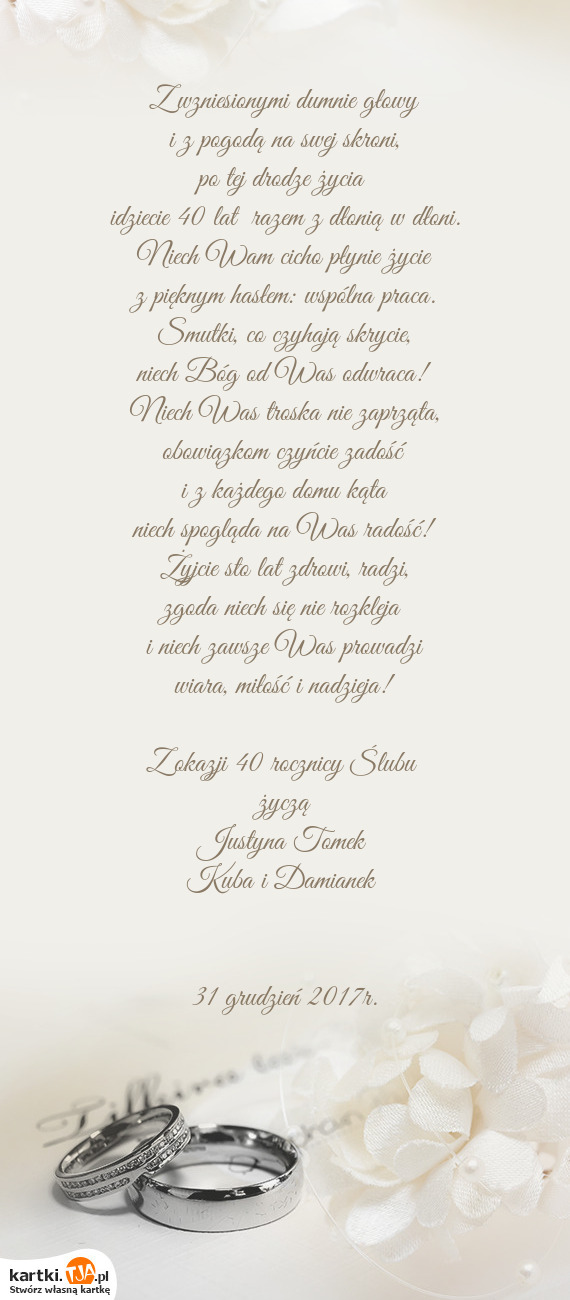 Zwzniesionymi dumnie głowy
i z pogodą na swej skroni,
po tej drodze życia
idziecie 40 lat razem z dłonią w dłoni.
Niech Wam cicho płynie życie
z pięknym hasłem: wspólna praca.
Smutki, co czyhają skrycie,
niech Bóg od Was odwraca!
Niech Was troska nie zaprząta,
obowiązkom czyńcie zadość
i z każdego domu kąta
niech spogląda na Was radość!
Żyjcie sto lat zdrowi, radzi,
zgoda niech się nie rozkleja
i niech zawsze Was prowadzi
wiara, miłość i nadzieja!
Zokazji 40 rocznicy Ślubu
życzą
Justyna Tomek
Kuba i Damianek
31 grudzień 2017r.
kartki.TJA.pl
Stwórz własną kartkę